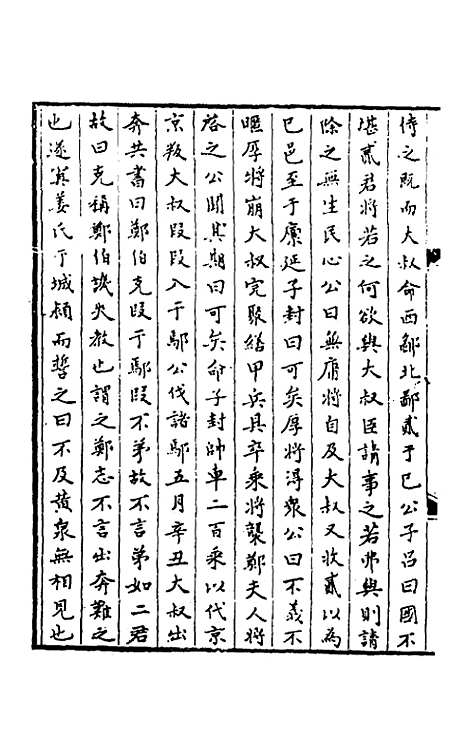 待之既而大叔命西鄙北鄙貳于已公子呂曰國不
堪貳君將若之何欲與大叔臣請事之若弗與則請
除之無生民心公曰無庸將自及大叔又收貳以為
已邑至于廩延子封曰可矣厚將得眾公曰不義不
暱厚將崩大叔完聚繕甲兵具卒乘將襲鄭夫人將
啓之公聞其期曰可矣命子封帥車二百乘以伐京
京叛大叔段段入于鄢公伐諸鄢五月辛丑大叔出
奔共書曰鄭伯克段于鄢段不弟故不言弟如二君
故曰克稱鄭伯譏失教也謂之鄭志不言出奔難之
也遂寘姜氏于城潁而誓之曰不及黃泉無相見也